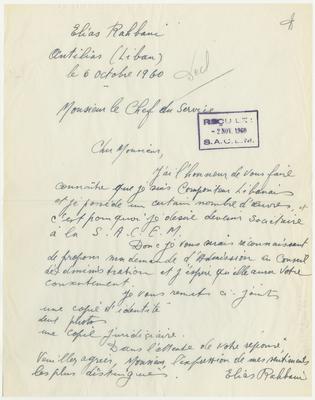 Elias Rahbani
Antilias (Liban)
le 6 Octobre 1960
Monsieur le Chef du Service
REÇU LE:
- 2 NOV. 1960
S.A.C.E.M.
Cher Monsieur,
J'ai l'honneur de vous faire
connaître que je suis Compositeur Libanais
et je possède un certain nombre d'œuvres, et
c'est pourquoi je désire devenir Sociétaire
à la S.A.C.E.M.
Donc je vous serais reconnaissant
de proposer ma demande d'Admission au Conseil
d'administration et j'espère qu'elle aura votre
consentement.
Je vous remets ci-joints
une copie d'identité
deux photos
une copie judiciaire.
Dans l'attente de votre réponse
Veuillez agréer, Monsieur, l'expression de mes sentiments
les plus distingués.
Elias Rahbani